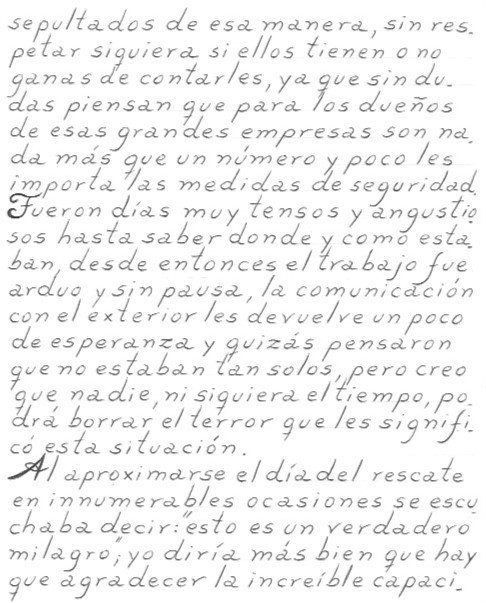 sepultados de esa manera, sin res-
petar siquiera si ellos tienen o no
ganas de contarles, ya que sin du-
das piensan que para los dueños
de esas grandes empresas son na-
da más que un número y poco les
importa las medidas de seguridad.
Fueron días muy tensos y angustio
sos hasta saber donde y como esta-
ban, desde entonces el trabajo fue
arduo y sin pausa, la comunicación
con el exterior les devuelve un poco
de esperanza y quizás pensaron
que no estaban tan solos, pero creo
que nadie, ni siquiera el tiempo, po-
drá borrar el terror que les signifi-
có esta situación.
Al aproximarse el día del rescate
en innumerables ocasiones se escu
chaba decir: "esto es un verdadero
milagro"; yo diría más bien que hay
que agradecer la increíble capaci-